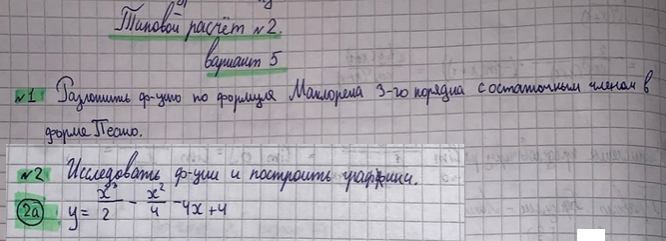 Типовой расчёт №2.
вариант 5
№1 Разложить ф-цию по формуле Маклорена 3-го порядка с остаточным членом в
форме Пеано.
№2 Исследовать ф-ции и построить графики.
2а y = x³/2 - x²/4 - 4x + 4